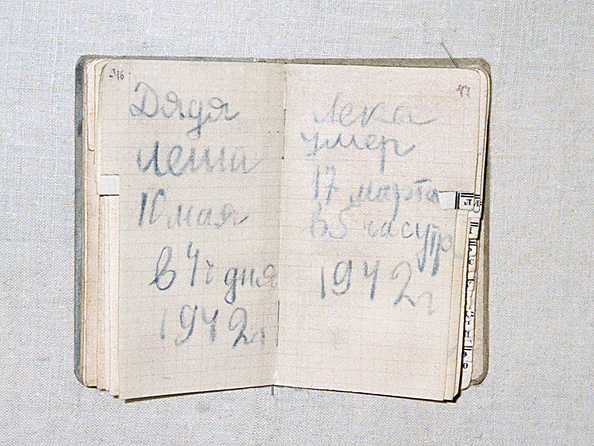 Дядя
Леша
10 мая
в 4ч дня
1942 г
Лека
умер
17 марта
в 5 часутр
1942 г